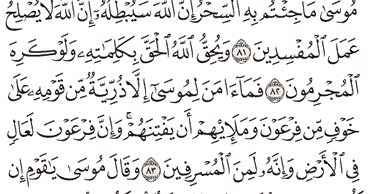 مُوسَىٰ مَا جِئْتُم بِهِ ٱلسِّحْرُ إِنَّ ٱللَّهَ سَيُبْطِلُهُۥٓ إِنَّ ٱللَّهَ لَا يُصْلِحُ
عَمَلَ ٱلْمُفْسِدِينَ ﴿٨١﴾ وَيُحِقُّ ٱللَّهُ ٱلْحَقَّ بِكَلِمَٰتِهِۦ وَلَوْ كَرِهَ
ٱلْمُجْرِمُونَ ﴿٨٢﴾ فَمَآ ءَامَنَ لِمُوسَىٰٓ إِلَّا ذُرِّيَّةٌ مِّن قَوْمِهِۦ عَلَىٰ
خَوْفٍ مِّن فِرْعَوْنَ وَمَلَإِي۟هِمْ أَن يَفْتِنَهُمْ ۚ وَإِنَّ فِرْعَوْنَ لَعَالٍ
فِى ٱلْأَرْضِ وَإِنَّهُۥ لَمِنَ ٱلْمُسْرِفِينَ ﴿٨٣﴾ وَقَالَ مُوسَىٰ يَٰقَوْمِ إِن